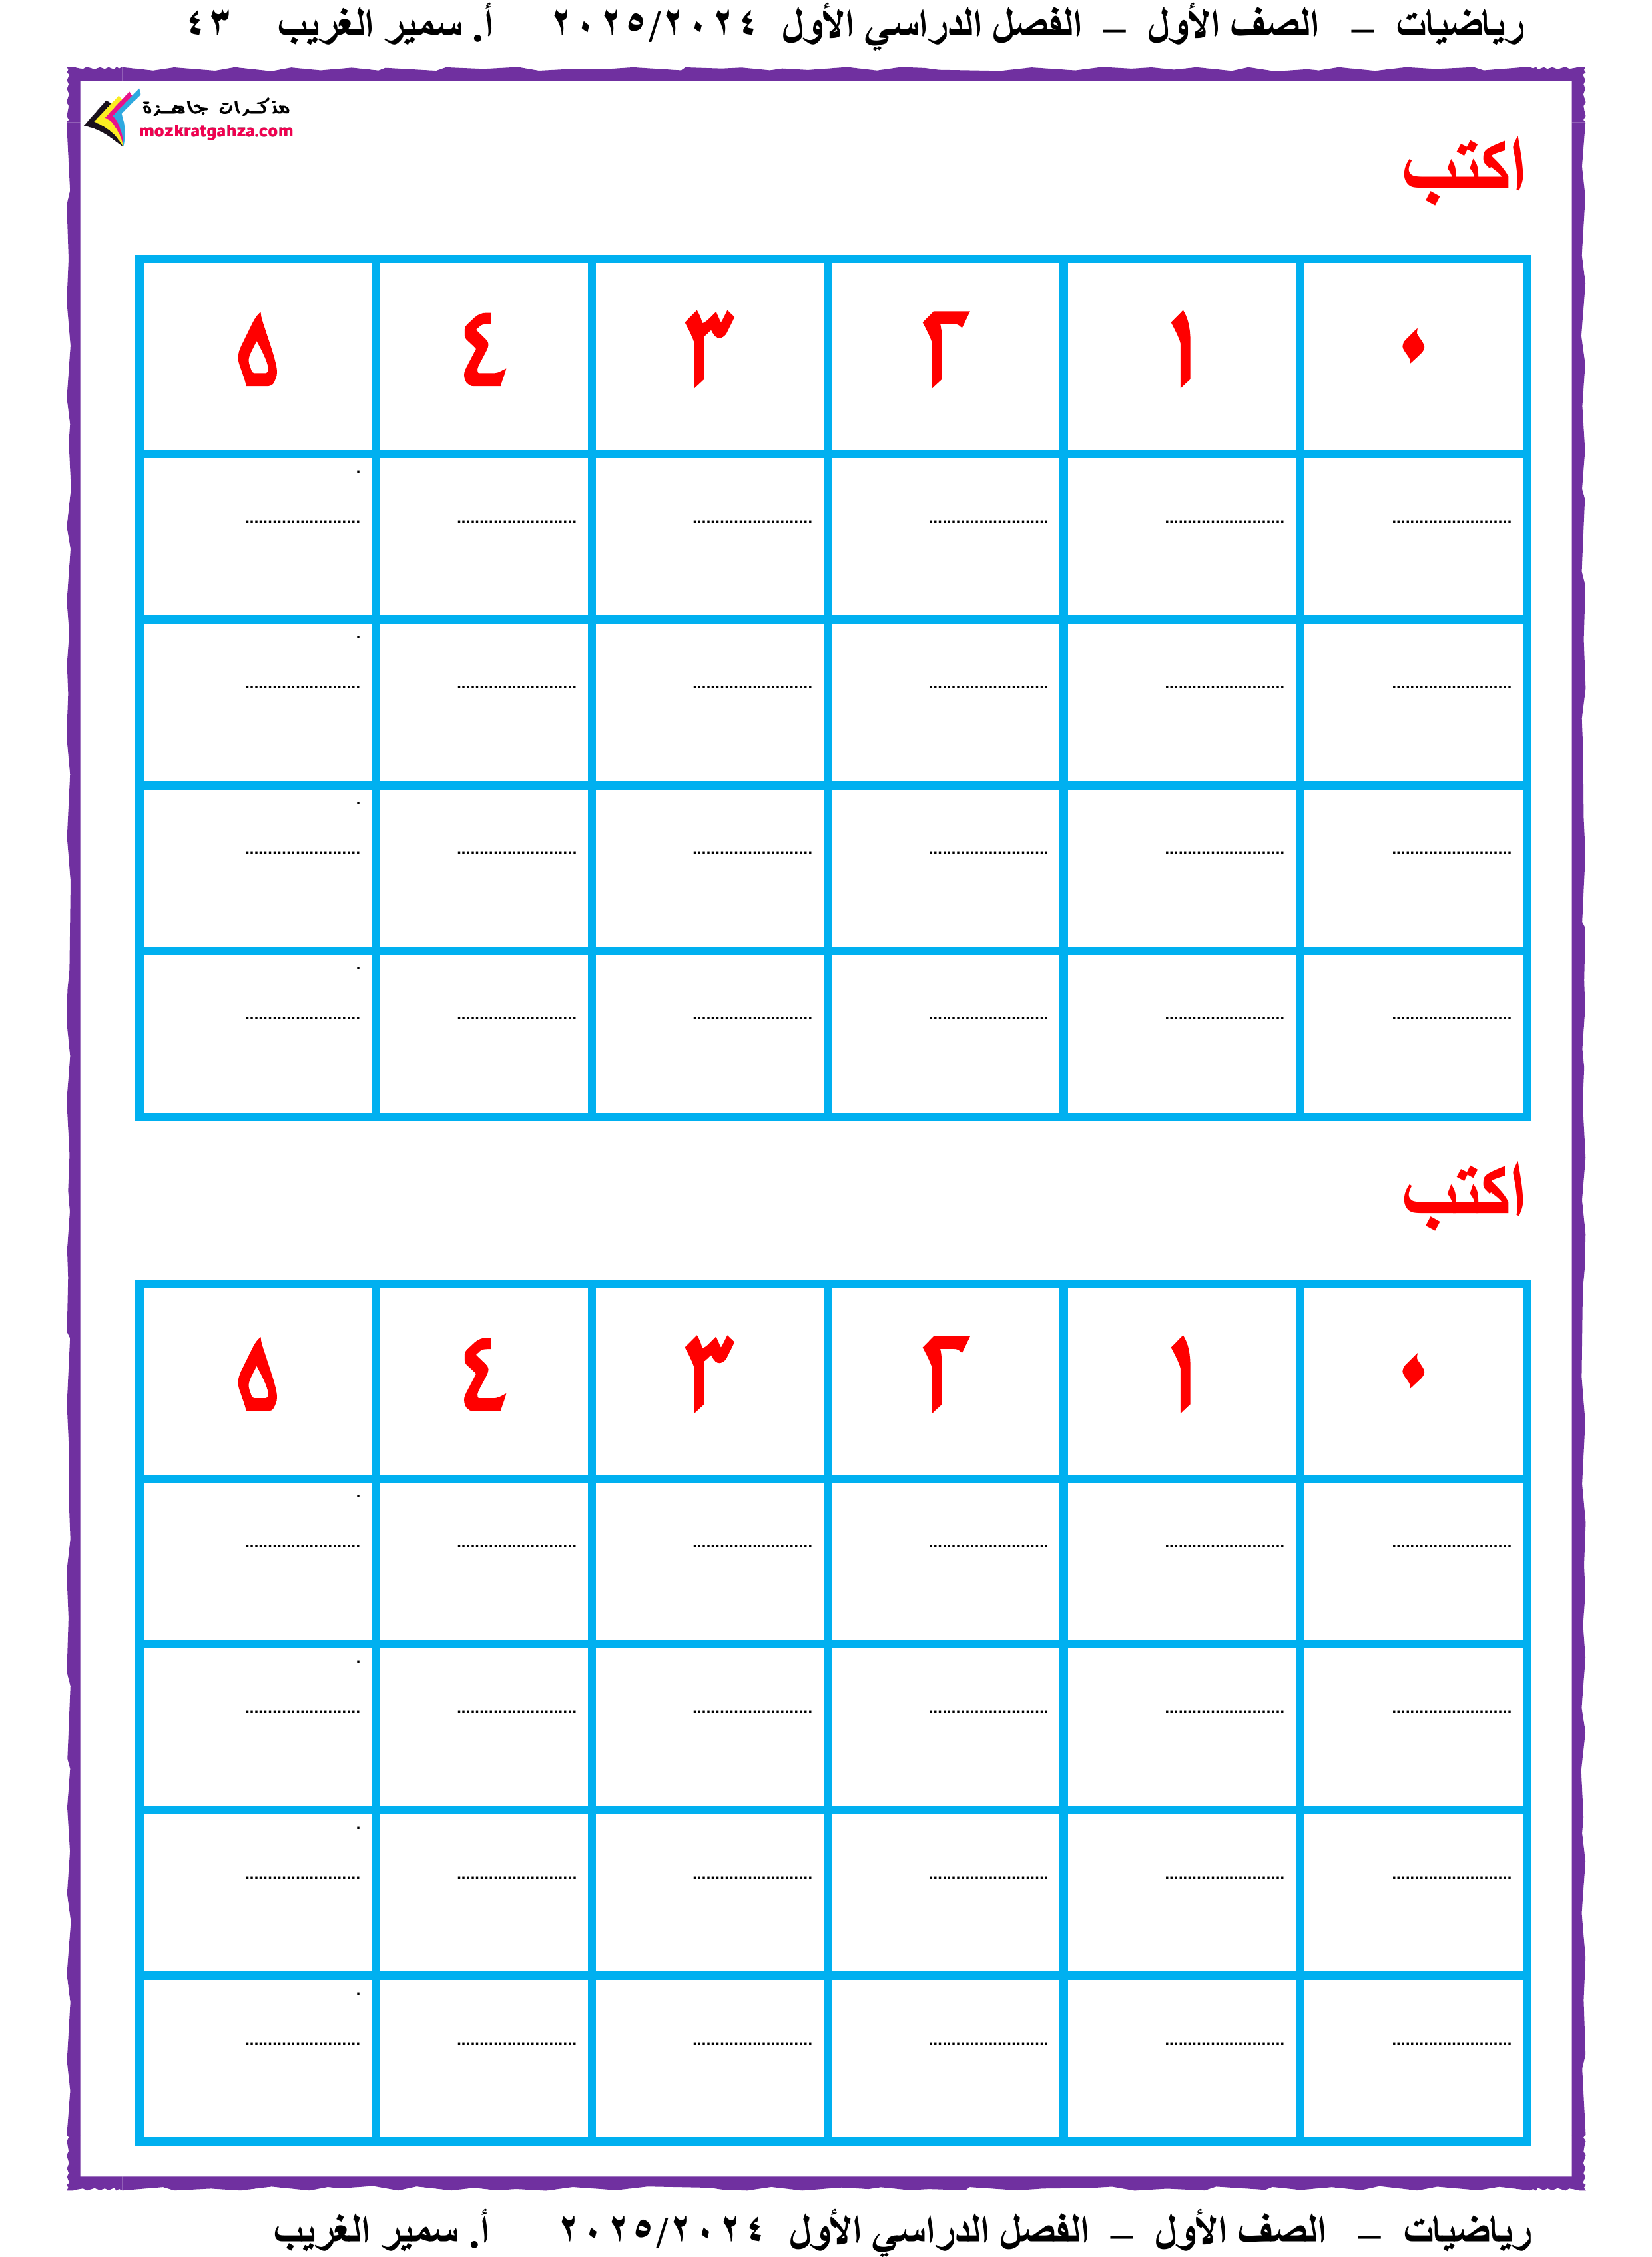 رياضيات – الصف الأول – الفصل الدراسي الأول ٢٠٢٥/٢٠٢٤ أ. سمير الغريب ٤٣
مذكرات جاهزة
mozkratgahza.com
اكتب
٠ ١ ٢ ٣ ٤ ٥
.......................... .......................... .......................... .......................... .......................... .........................
.......................... .......................... .......................... .......................... .......................... .........................
.......................... .......................... .......................... .......................... .......................... .........................
.......................... .......................... .......................... .......................... .......................... .........................
اكتب
٠ ١ ٢ ٣ ٤ ٥
.......................... .......................... .......................... .......................... .......................... .........................
.......................... .......................... .......................... .......................... .......................... .........................
.......................... .......................... .......................... .......................... .......................... .........................
.......................... .......................... .......................... .......................... .......................... .........................
رياضيات – الصف الأول – الفصل الدراسي الأول ٢٠٢٥/٢٠٢٤ أ. سمير الغريب